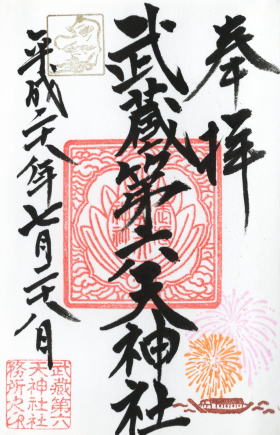 奉拝
武蔵第六天神社
平成二十八年七月二十八日
武蔵第六
天神社社
務所之印